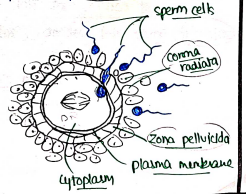 sperm cells
corona
radiata
zona pellucida
plasma membrane
cytoplasm